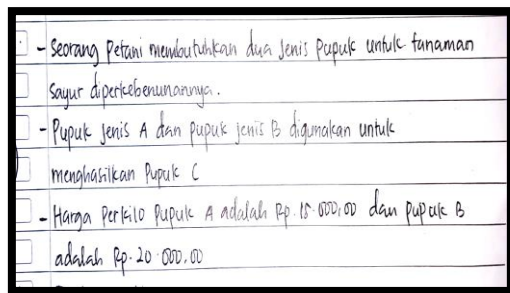 - Seorang Petani membutuhkan dua Jenis Pupuk untuk tanaman
Sayur diperkebenunannya.
- Pupuk Jenis A dan pupuk jenis B digunakan untuk
menghasilkan Pupuk C
- Harga Perkilo Pupuk A adalah Rp. 15.000,00 dan pupuk B
adalah Rp. 20.000,00